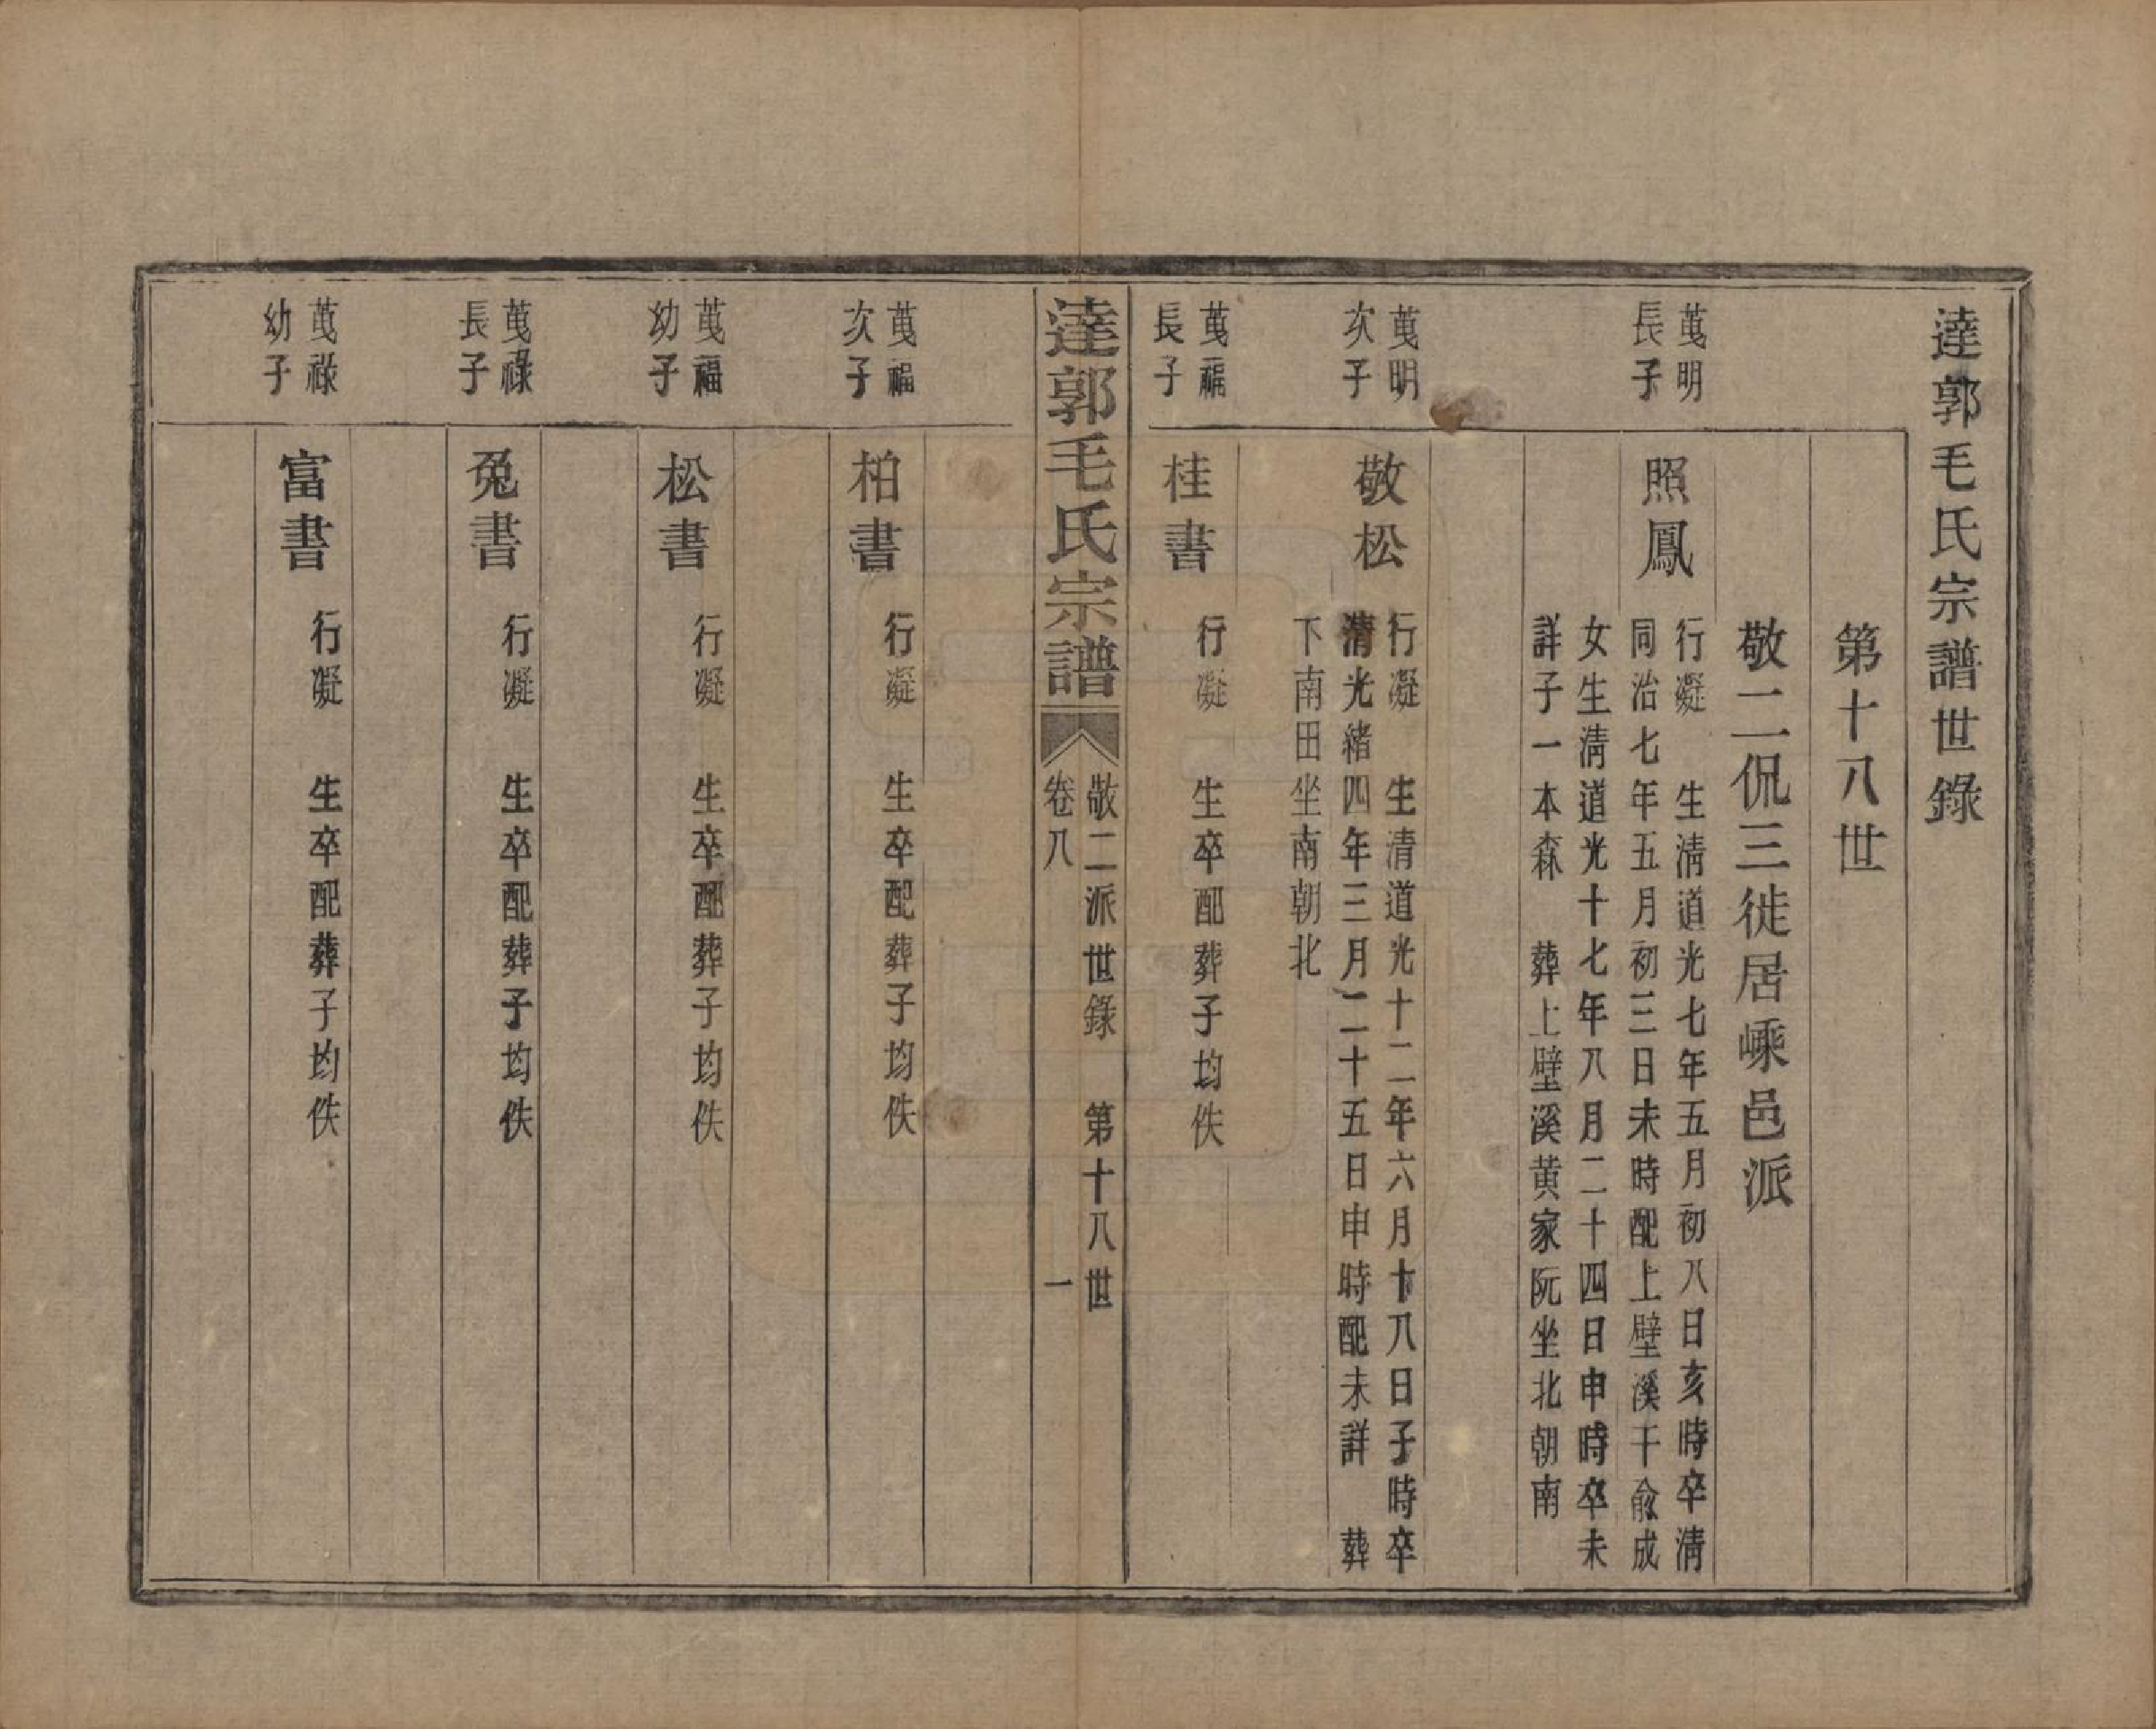 達郭毛氏宗譜世錄
第十八世
敬二侃三徙居嵊邑派
萬明
長子
照鳳
行凝　生淸道光七年五月初八日亥時卒淸
同治七年五月初三日未時配上壁溪干兪成
女生淸道光十七年八月二十四日申時卒未
詳子一本森　葬上壁溪黄家阮坐北朝南
萬明
次子
敬松
行凝　生清道光十二年六月十八日子時卒
清光緒四年三月二十五日申時配未詳　葬
下南田坐南朝北
萬福
長子
桂書
行凝　生卒配葬子均佚
達郭毛氏宗譜
敬二派世錄　第十八世
卷八　一
萬福
次子
柏書
行凝　生卒配葬子均佚
萬福
幼子
松書
行凝　生卒配葬子均佚
萬祿
長子
兔書
行凝　生卒配葬子均佚
萬祿
幼子
富書
行凝　生卒配葬子均佚